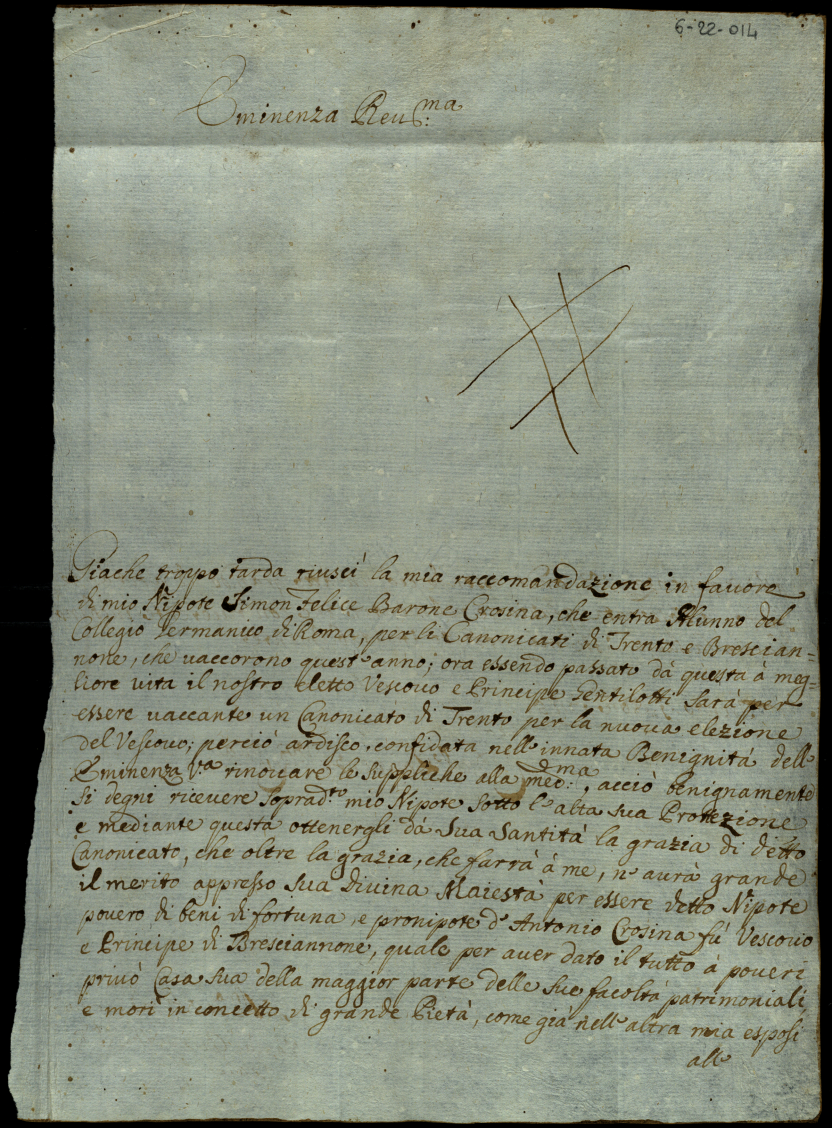 6-22-014
Eminenza Reu:ma
Giache troppo tarda riuscì la mia raccomandazione in fauore
di mio Nipote Simon Felice Barone Crosina, che entra Alunno del
Collegio Germanico di Roma, per li Canonicati di Trento e Brescian=
none, che uaccorono quest'anno; ora essendo passato dà questa à meg=
liore uita il nostro eletto Vescouo e Principe Gentilotti sarà per
essere uaccante un Canonicato di Trento per la nuoua elezione
del Vescouo; perciò ardisco, confidata nell'innata Benignità dell'
Eminenza V:a rinouare le suppliche alla med:ma, acciò benignamente
si degni riceuere soprad:to mio Nipote sotto l'alta sua Protezione
e mediante questa ottenergli dà Sua Santità la grazia di detto
Canonicato, che oltre la grazia, che farrà à me, n'aurà grande
il merito appresso Sua Diuina Maiestà per essere detto Nipote
pouero di beni di fortuna, e pronipote d'Antonio Crosina fù Vescouo
e Principe di Bresciannone, quale per auer dato il tutto à poueri
priuò Casa sua della maggior parte delle sue facoltà patrimoniali,
e morì in concetto di grande Pietà, come già nell'altra mia esposi
all'